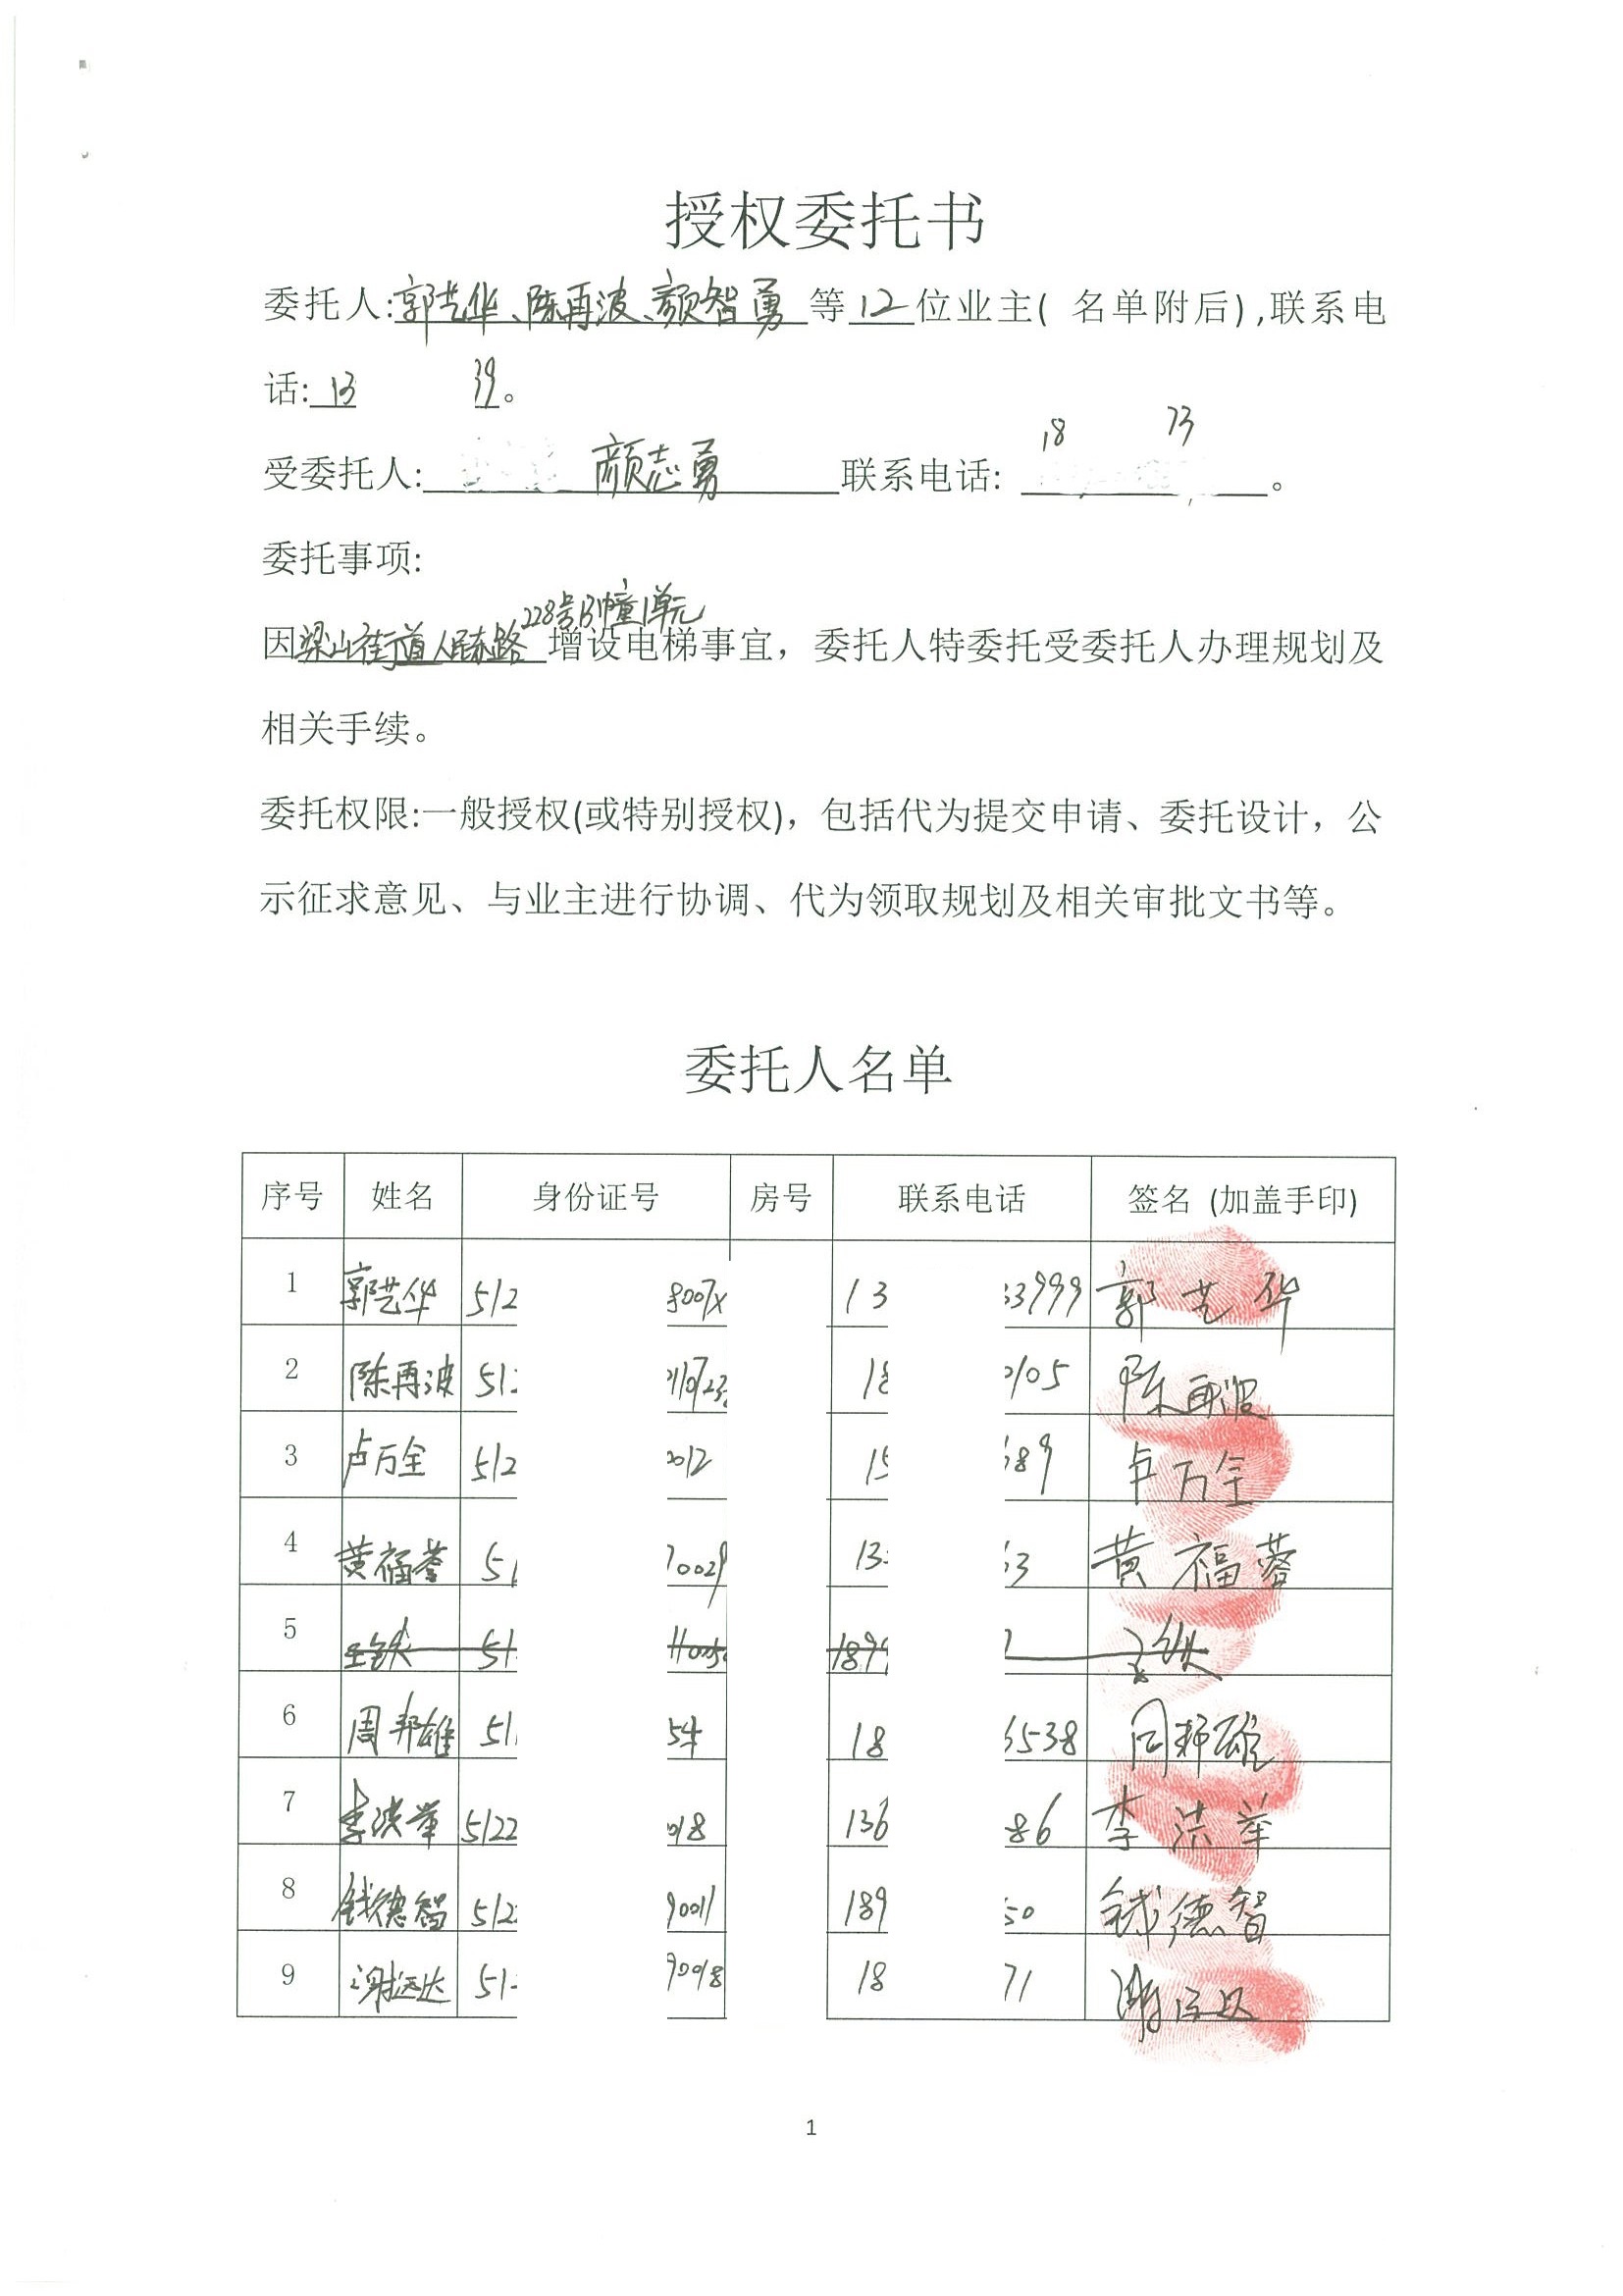 授权委托书
委托人:郭艺华、陈再波、颜智勇等12位业主( 名单附后),联系电
话:13 39。
18 73
受委托人: 颜志勇 联系电话: 。
委托事项:
228号B幢1单元
因梁山街道人民东路增设电梯事宜，委托人特委托受委托人办理规划及
相关手续。
委托权限:一般授权(或特别授权)，包括代为提交申请、委托设计，公
示征求意见、与业主进行协调、代为领取规划及相关审批文书等。
委托人名单
序号 姓名 身份证号 房号 联系电话 签名 (加盖手印)
1 郭艺华 512 8007X 13 33999 郭艺华
2 陈再波 51 18 0105 陈再波
3 卢万全 512 0012 15 89 卢万全
4 黄福蓉 51 70029 13 3 黄福蓉
5 王铁 51 1899 王铁
6 周邦雄 51 54 18 6538 周邦雄
7 李洪举 5122 018 136 86 李洪举
8 钱德智 512 90011 189 50 钱德智
9 谢远达 51 90018 18 71 谢远达
1